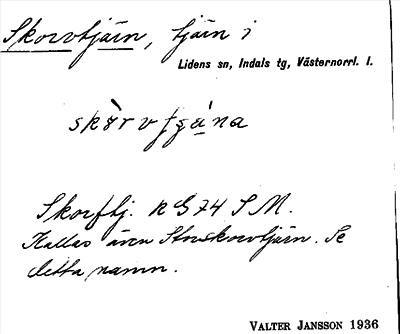 Skorvtjärn, tjärn i
Lidens sn, Indals tg, Västernorrl. l.
Skorftj. RG 74 SM.
Kallas även Storskorvtjärn. Se
detta namn.
VALTER JANSSON 1936